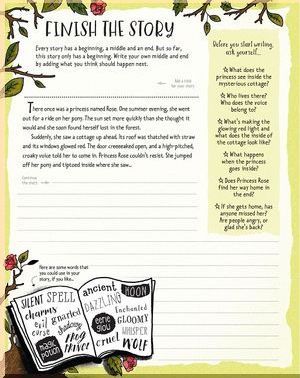 FINISH THE STORY
Every story has a beginning, a middle and an end. But so far,
this story only has a beginning. Write your own middle and end
by adding what you think should happen next.
Add a title
for your story.
There once was a princess named Rose. One summer evening, she went
out for a ride on her pony. The sun set more quickly than she thought it
would and she soon found herself lost in the forest.
Suddenly, she saw a cottage up ahead. Its roof was thatched with straw
and its windows glowed red. The door creeeeaked open, and a high-pitched,
croaky voice told her to come in. Princess Rose couldn't resist. She jumped
off her pony and tiptoed inside where she saw...
Continue
the story.
Before you start writing,
ask yourself...
☆ What does the
princess see inside the
mysterious cottage?
☆ Who lives there?
Who does the voice
belong to?
☆ What's making the
glowing red light and
what does the inside of
the cottage look like?
☆ What happens
when the princess
goes inside?
☆ Does Princess Rose
find her way home in
the end?
☆ If she gets home, has
anyone missed her?
Are people angry, or
glad she's back?
Here are some words that
you could use in your
story, if you like...
SILENT SPELL
charms
evil gnarled
curse shadowy
magic
potion
ancient MOON
DAZZLING
eerie
glow
Enchanted
GLOOMY
WHISPER
cruel WOLF